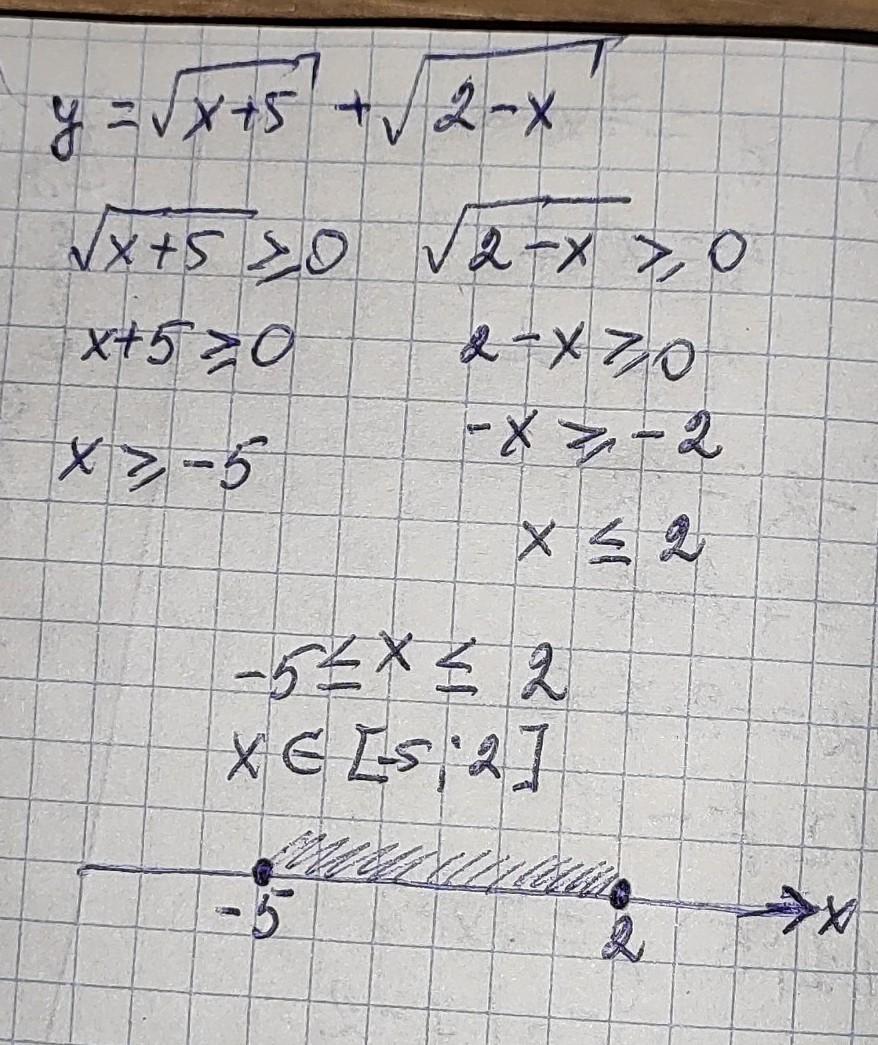 y = √(x+5) + √(2-x)
√(x+5) ≥ 0 √(2-x) ≥ 0
x+5 ≥ 0 2-x ≥ 0
x ≥ -5 -x ≥ -2
x ≤ 2
-5 ≤ x ≤ 2
x ∈ [-5; 2]
-5 2 x